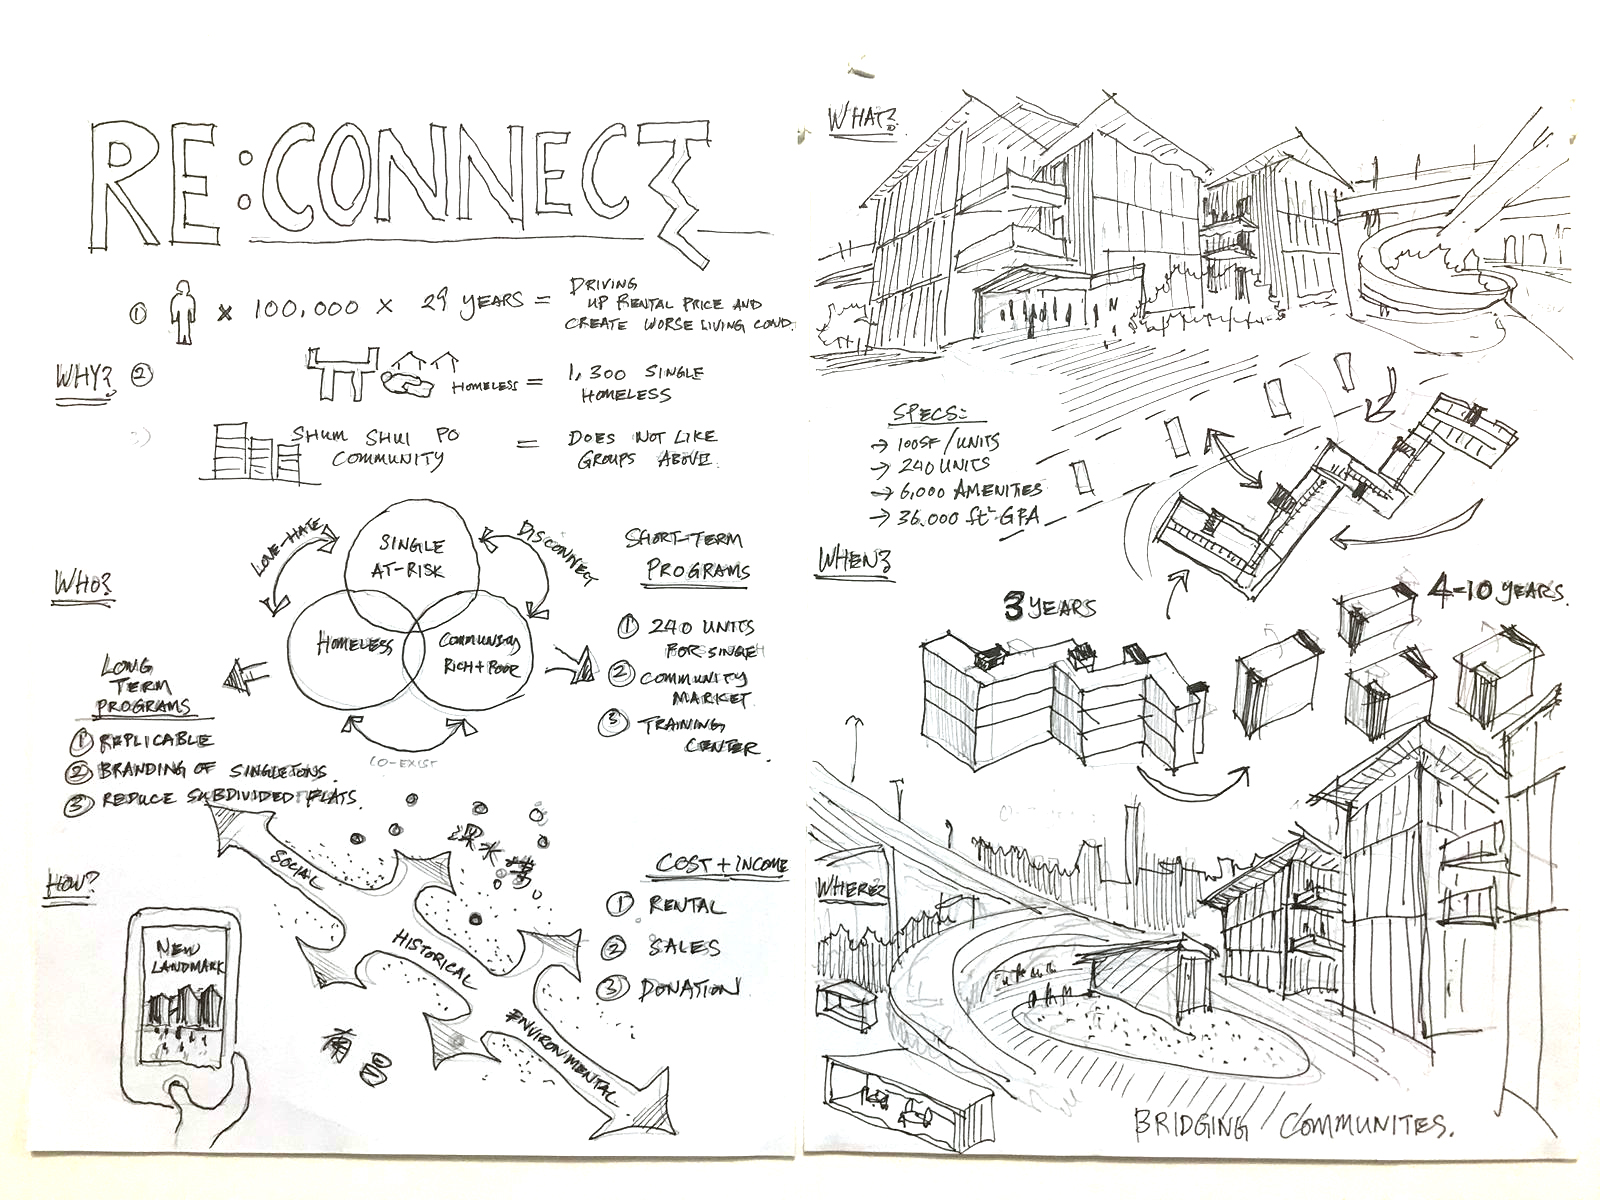 RE:CONNECT
① × 100,000 × 29 YEARS = DRIVING
UP RENTAL PRICE AND
CREATE WORSE LIVING COND.
WHY? ②
HOMELESS = 1,300 SINGLE
HOMELESS
3)
SHUM SHUI PO
COMMUNITY
= DOES NOT LIKE
GROUPS ABOVE.
WHO?
LOVE-HATE
DISCONNECT
SINGLE
AT-RISK
HOMELESS
COMMUNITY
RICH + POOR
CO-EXIST
SHORT-TERM
PROGRAMS
① 240 UNITS
FOR SINGLE
② COMMUNITY
MARKET
③ TRAINING
CENTER
LONG
TERM
PROGRAMS
① REPLICABLE
② BRANDING OF SINGLETONS.
③ REDUCE SUBDIVIDED FLATS.
HOW?
NEW
LANDMARK
SOCIAL
HISTORICAL
ENVIRONIMENTAL
深水埗
南昌
COST + INCOME
① RENTAL
② SALES
③ DONATION
WHAT?
SPECS:
→ 100SF/UNITS
→ 240 UNITS
→ 6,000 AMENITIES
→ 36.000 ft² GFA
WHEN?
3 YEARS
4-10 YEARS.
WHERE?
BRIDGING COMMUNITES.